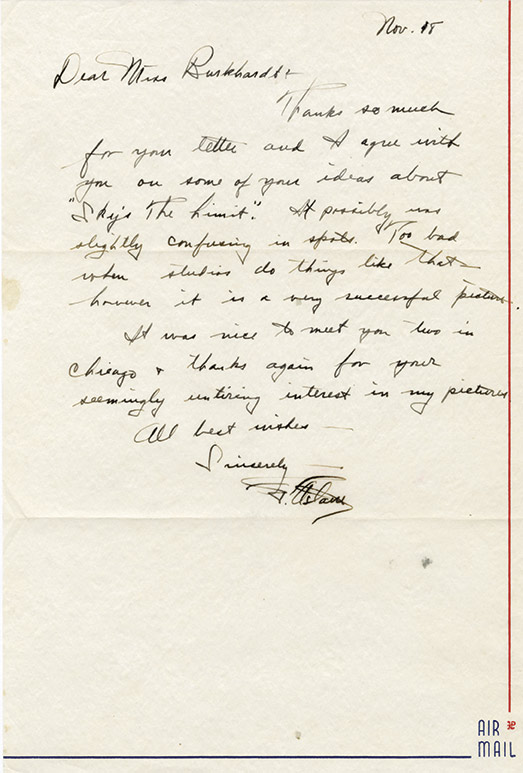 Nov. 18
Dear Miss Burkhardt
Thanks so much
for your letter and I agree with
you on some of your ideas about
"Sky's The Limit". It possibly was
slightly confusing in spots. Too bad
when studios do things like that –
however it is a very successful picture.
It was nice to meet you two in
Chicago & thanks again for your
seemingly untiring interest in my pictures
All best wishes –
Sincerely –
AIR
MAIL